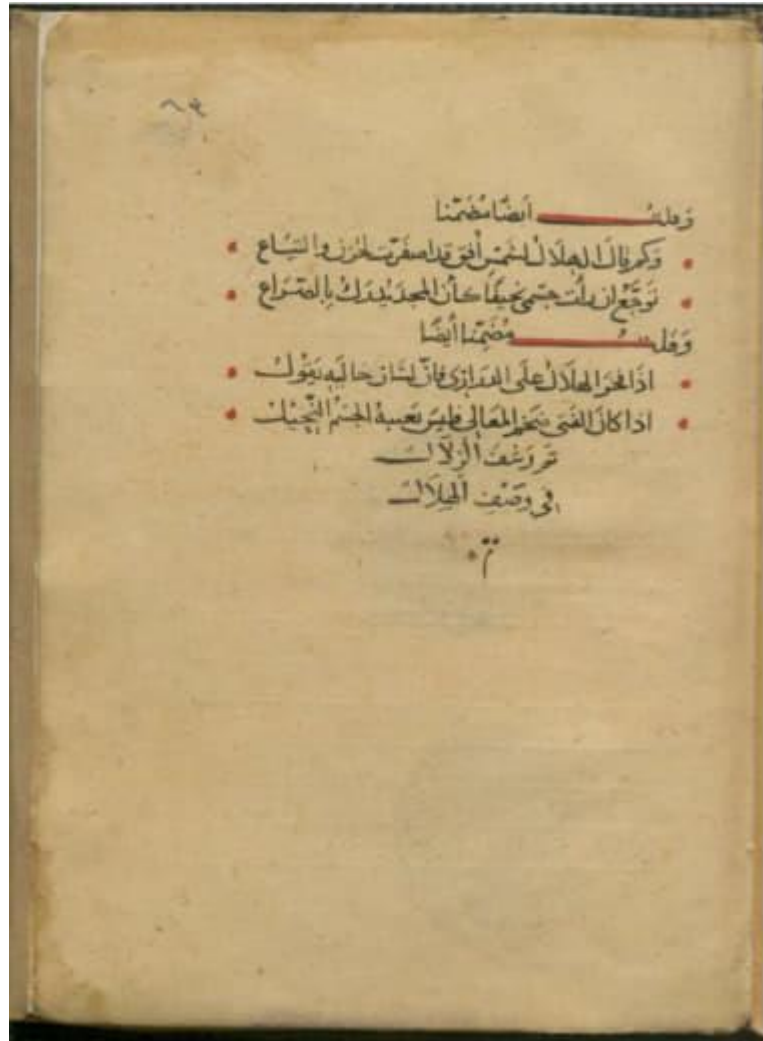 ٨٩
وقلت أيضًا مضمّنا
وكم قال الهلال لشمس أفق قد اصفرّت لحزن والتياع
توجّع ان رأت جسمي نحيفًا كأن المجد يدرك بالصراع
وقلت مضمّنا أيضًا
اذا فخر الهلال على الدراري فانّ لسان حاله يقول
اذا كان الفتى ضخم المعالي فليس يعيبه الجسم النّحيل
تم رشف الزّلال
في وصف الهلال